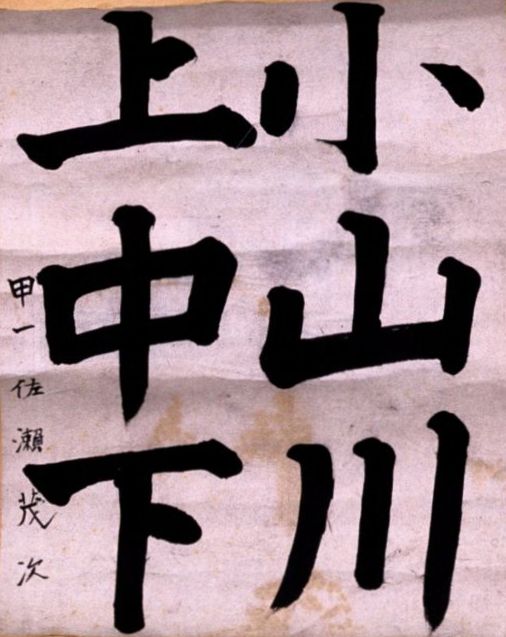 小山川
上中下
甲一 佐瀬茂次